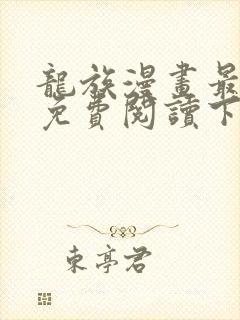 龍族漫畫最
免費閱讀下
東亭君